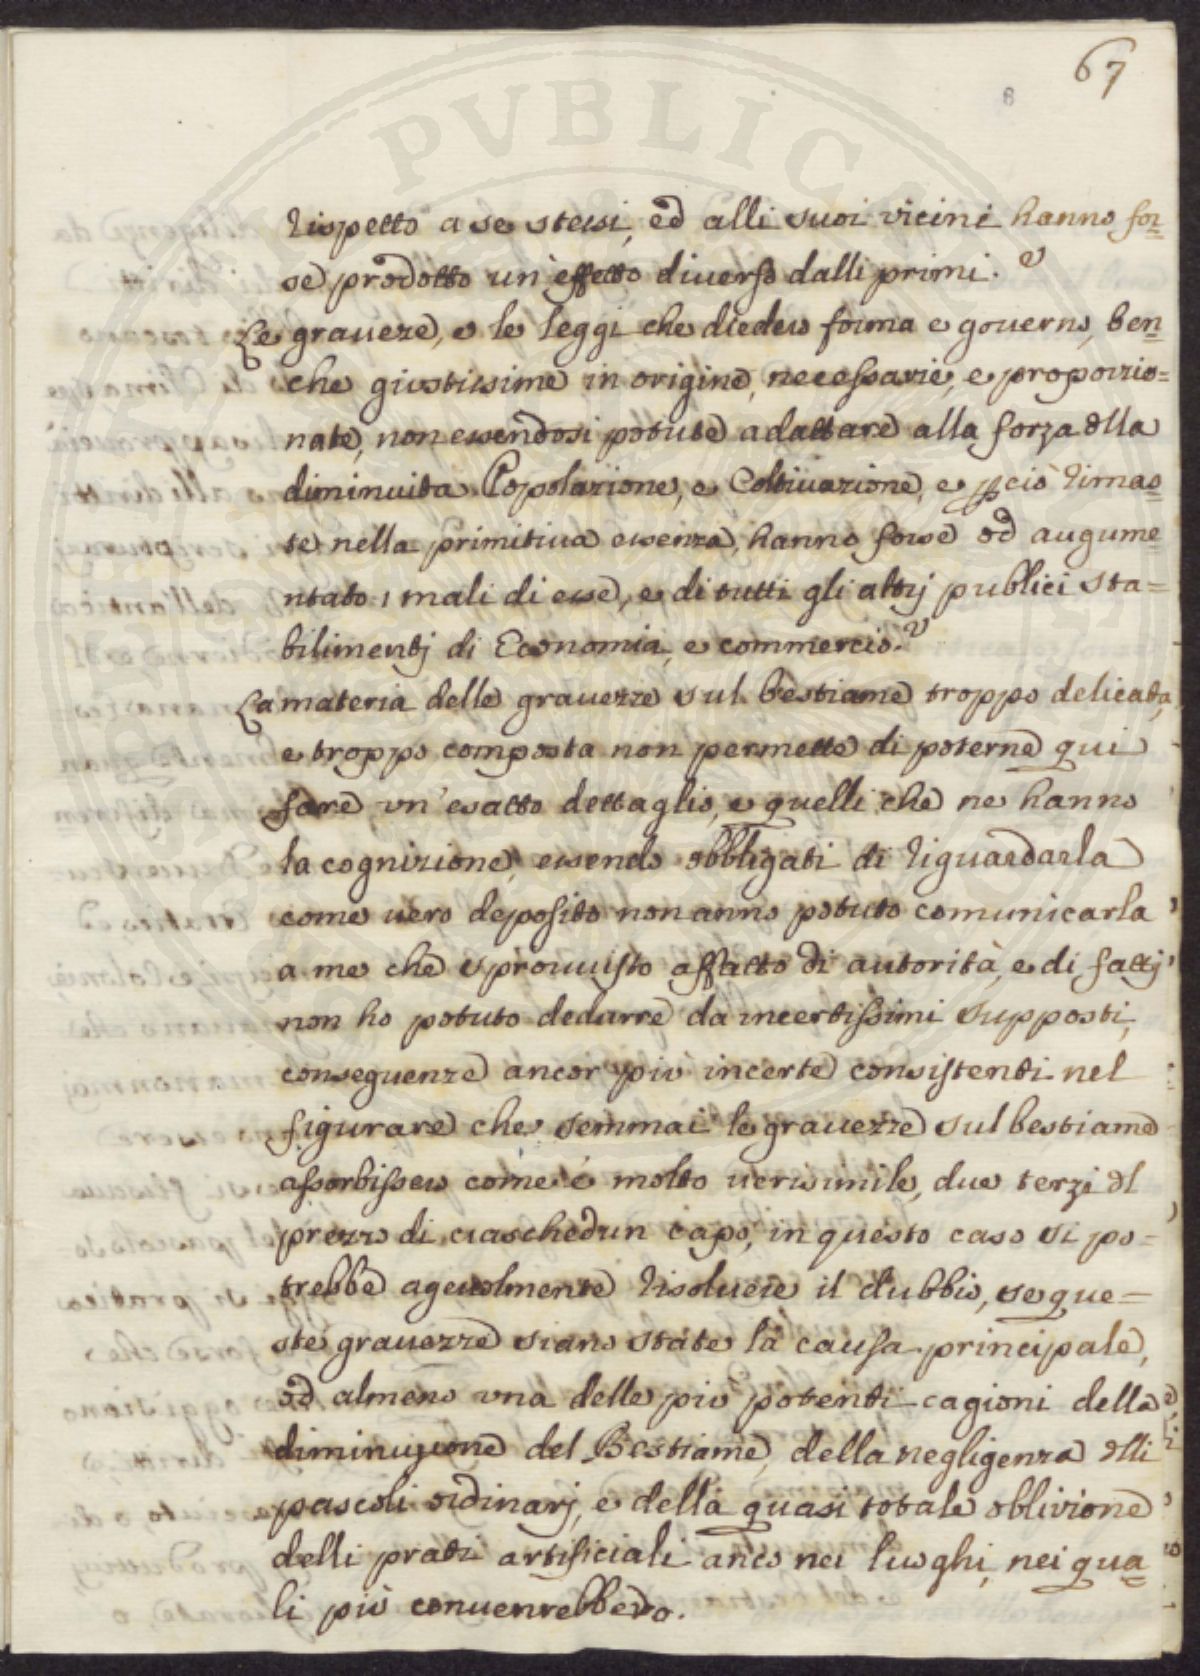 67
6
PVBLICA
rispetto a se stessi, ed alli suoi vicini hanno for=
se prodotto un'effetto diverso dalli primi. e
Le graveze, e le leggi che diedero forma e governo, ben=
che giustissime in origine, necessarie, e proporzio=
nate, non essendosi potute adattare alla forza dlla
diminuita Popolazione, e Coltivazione, e pciò rimas=
te nella primitiva essenza, hanno forse od augume=
ntato i mali di esse, e di tutti gli altrj publici sta=
bilimentj di Economia, e commercio. e
La materia delle gravezze sul bestiame troppo delicata,
e troppo composta non permette di poterne qui
fare vn'esatto dettaglio, e quelli che ne hanno
la cognizione, essendo obbligati di riguardarla
come vero deposito non anno potuto comunicarla
a me che sprovvisto affatto di autorità, e di fattj
non ho potuto dedurre da incertissimi supposti,
conseguenze ancor più incerte consistenti nel
figurare che semmai le gravezze sul bestiame
assorbissero come è molto verisimile, due terzi dl
prezzo di ciaschedun capo, in questo caso si po=
trebbe agevolmente risolvere il dubbio, se que=
ste gravezze siano state la causa principale,
od almeno vna delle più potenti cagioni della
diminuzione del Bestiame, della negligenza dlli
pascoli ordinarj, e della quasi totale oblivione
delli prati artificiali anco nei luoghi, nei qua=
li più converrebbero.